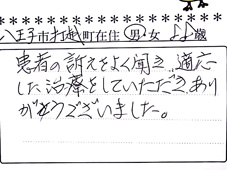 ****************
八王子市打越町在住 男・女 歳
患者の訴えをよく聞き、適応
した治療をしていただき、あり
がとうございました。